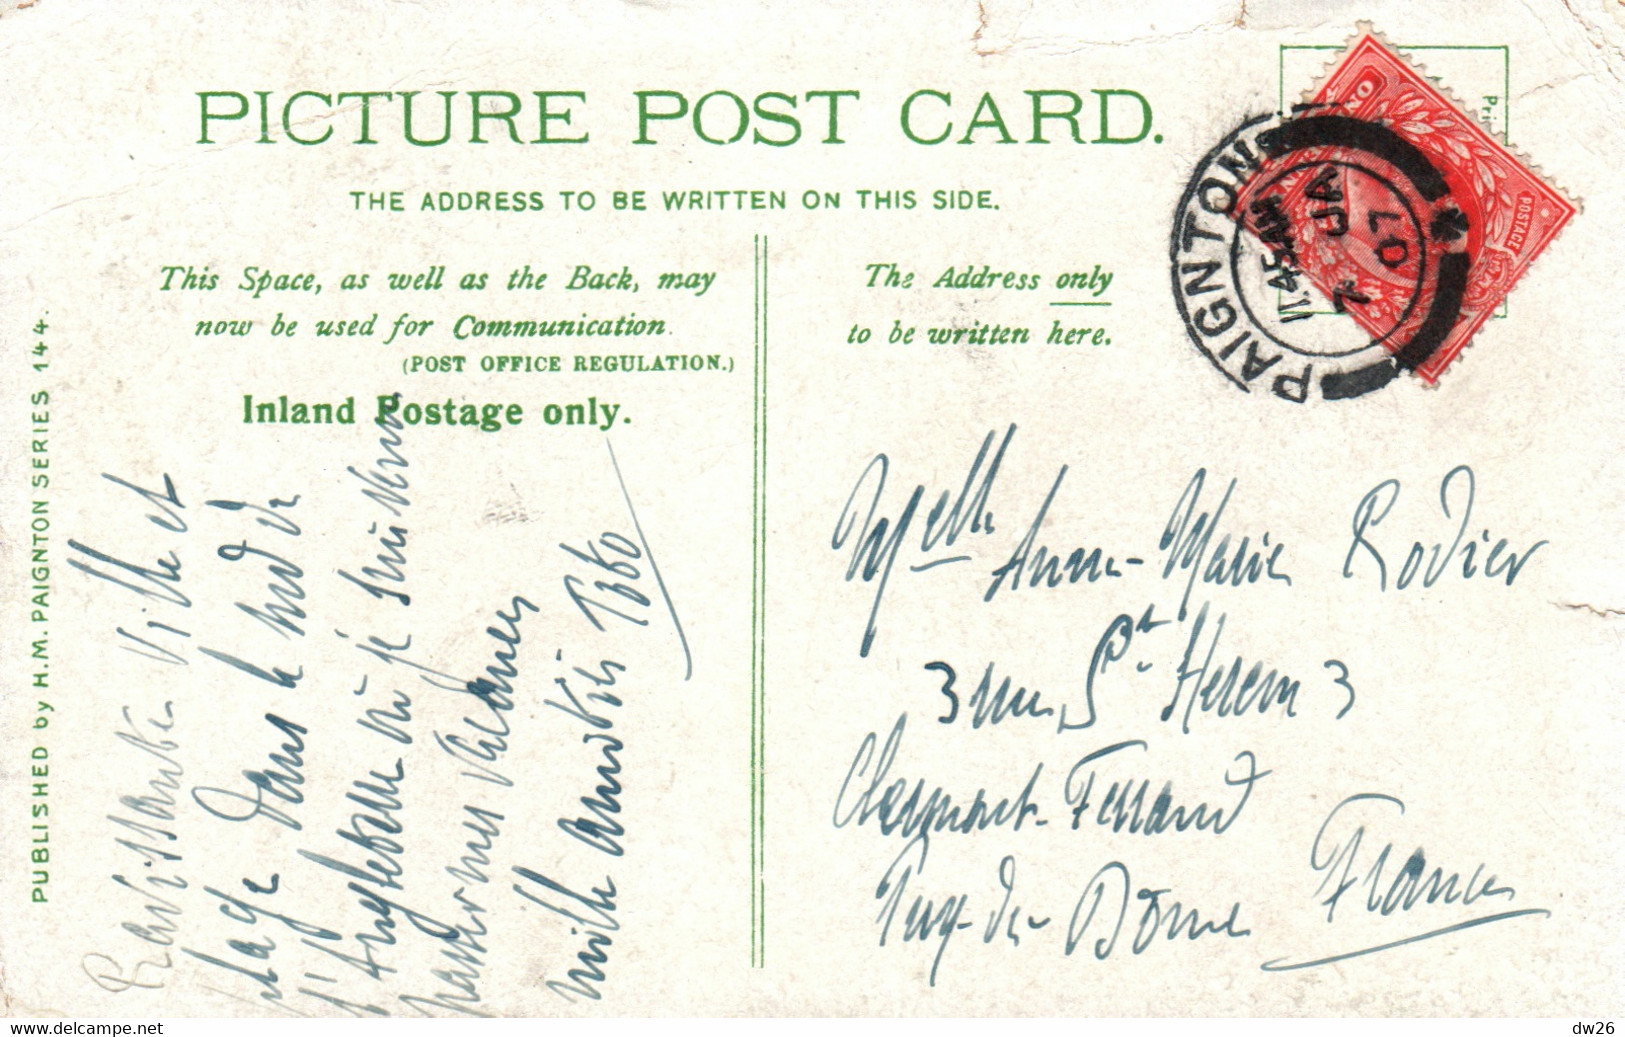 PICTURE POST CARD.
THE ADDRESS TO BE WRITTEN ON THIS SIDE.
This Space, as well as the Back, may
now be used for Communication.
(POST OFFICE REGULATION.)
Inland Postage only.
The Address only
to be written here.
Pri
POSTAGE
ON
PAIGNTON
11.45AM
JA 7
07
PUBLISHED by H.M. PAIGNTON SERIES 144.
Ravissante ville et
plage dans le midi de
l'Angleterre où je suis
passer mes vacances
mille amitiés
Melle Anne-Marie Rodier
3 rue St Herem 3
Clermont-Ferrand
Puy-de-Dôme France
www.delcampe.net
dw26